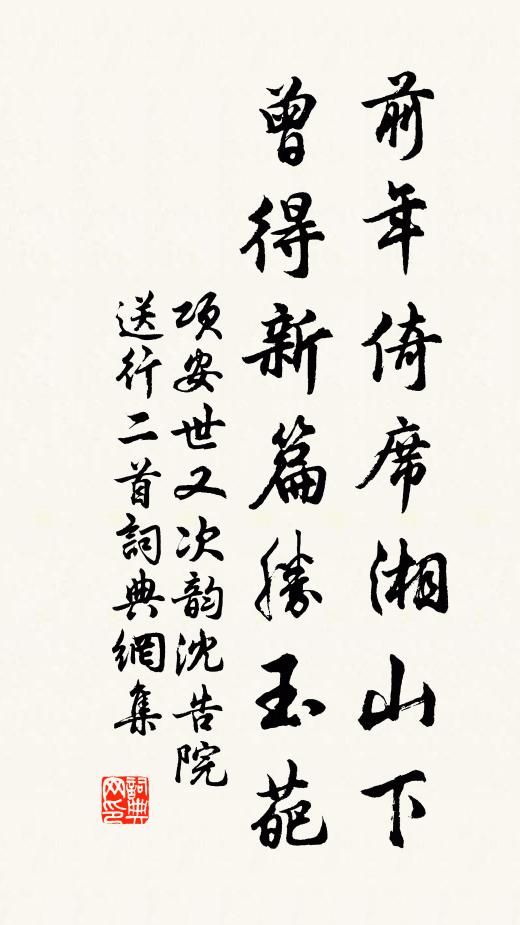 前年倚席湘山下
曾得新篇勝玉葩
項安世又次韵沈告院
送行二首詞典網集
詞典
网印